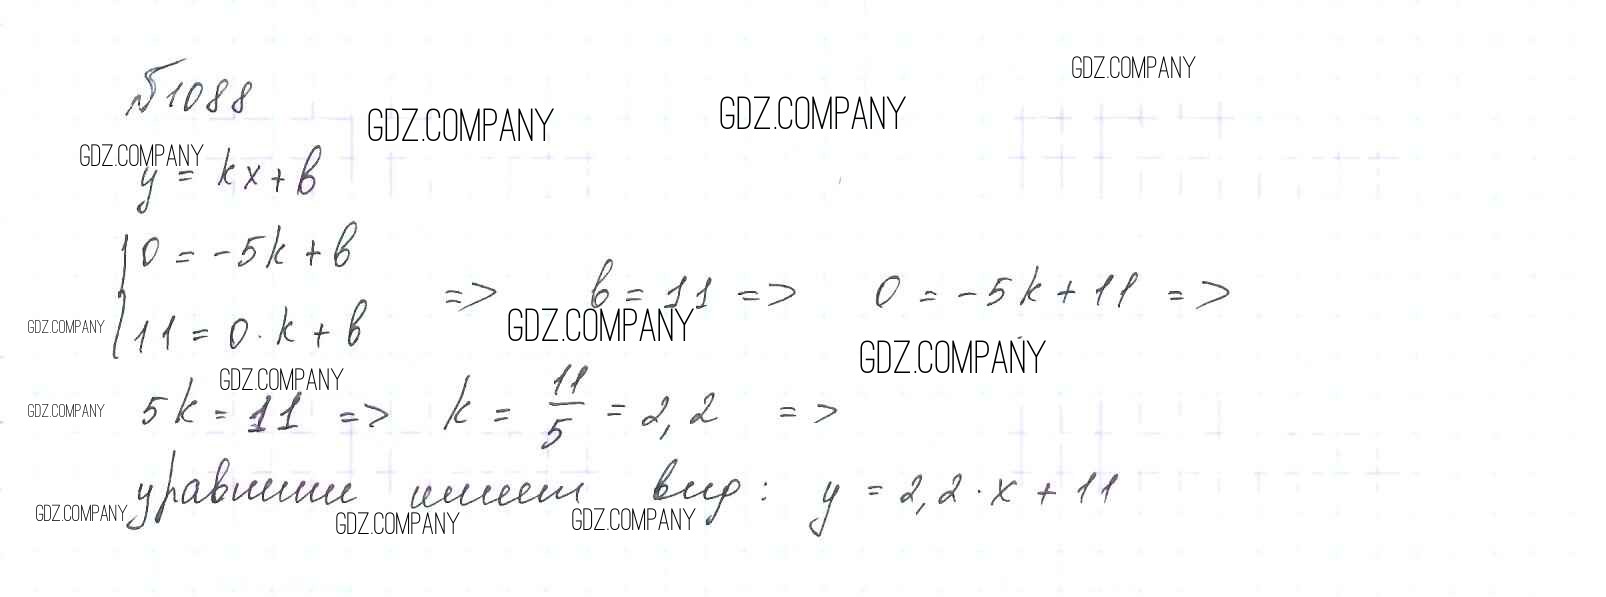 GDZ.COMPANY
№1088
GDZ.COMPANY
GDZ.COMPANY
GDZ.COMPANY
y = kx + b
0 = -5k + b
11 = 0·k + b
=> b = 11 => 0 = -5k + 11 =>
GDZ.COMPANY
GDZ.COMPANY
GDZ.COMPANY
GDZ.COMPANY
GDZ.COMPANY
5k = 11 => k = 11/5 = 2,2 =>
уравнение имеет вид: y = 2,2·x + 11
GDZ.COMPANY
GDZ.COMPANY
GDZ.COMPANY